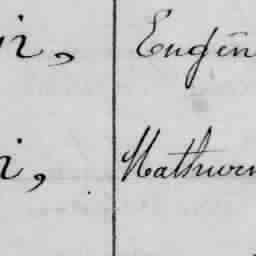 i, Eugèn
i, Mathurn